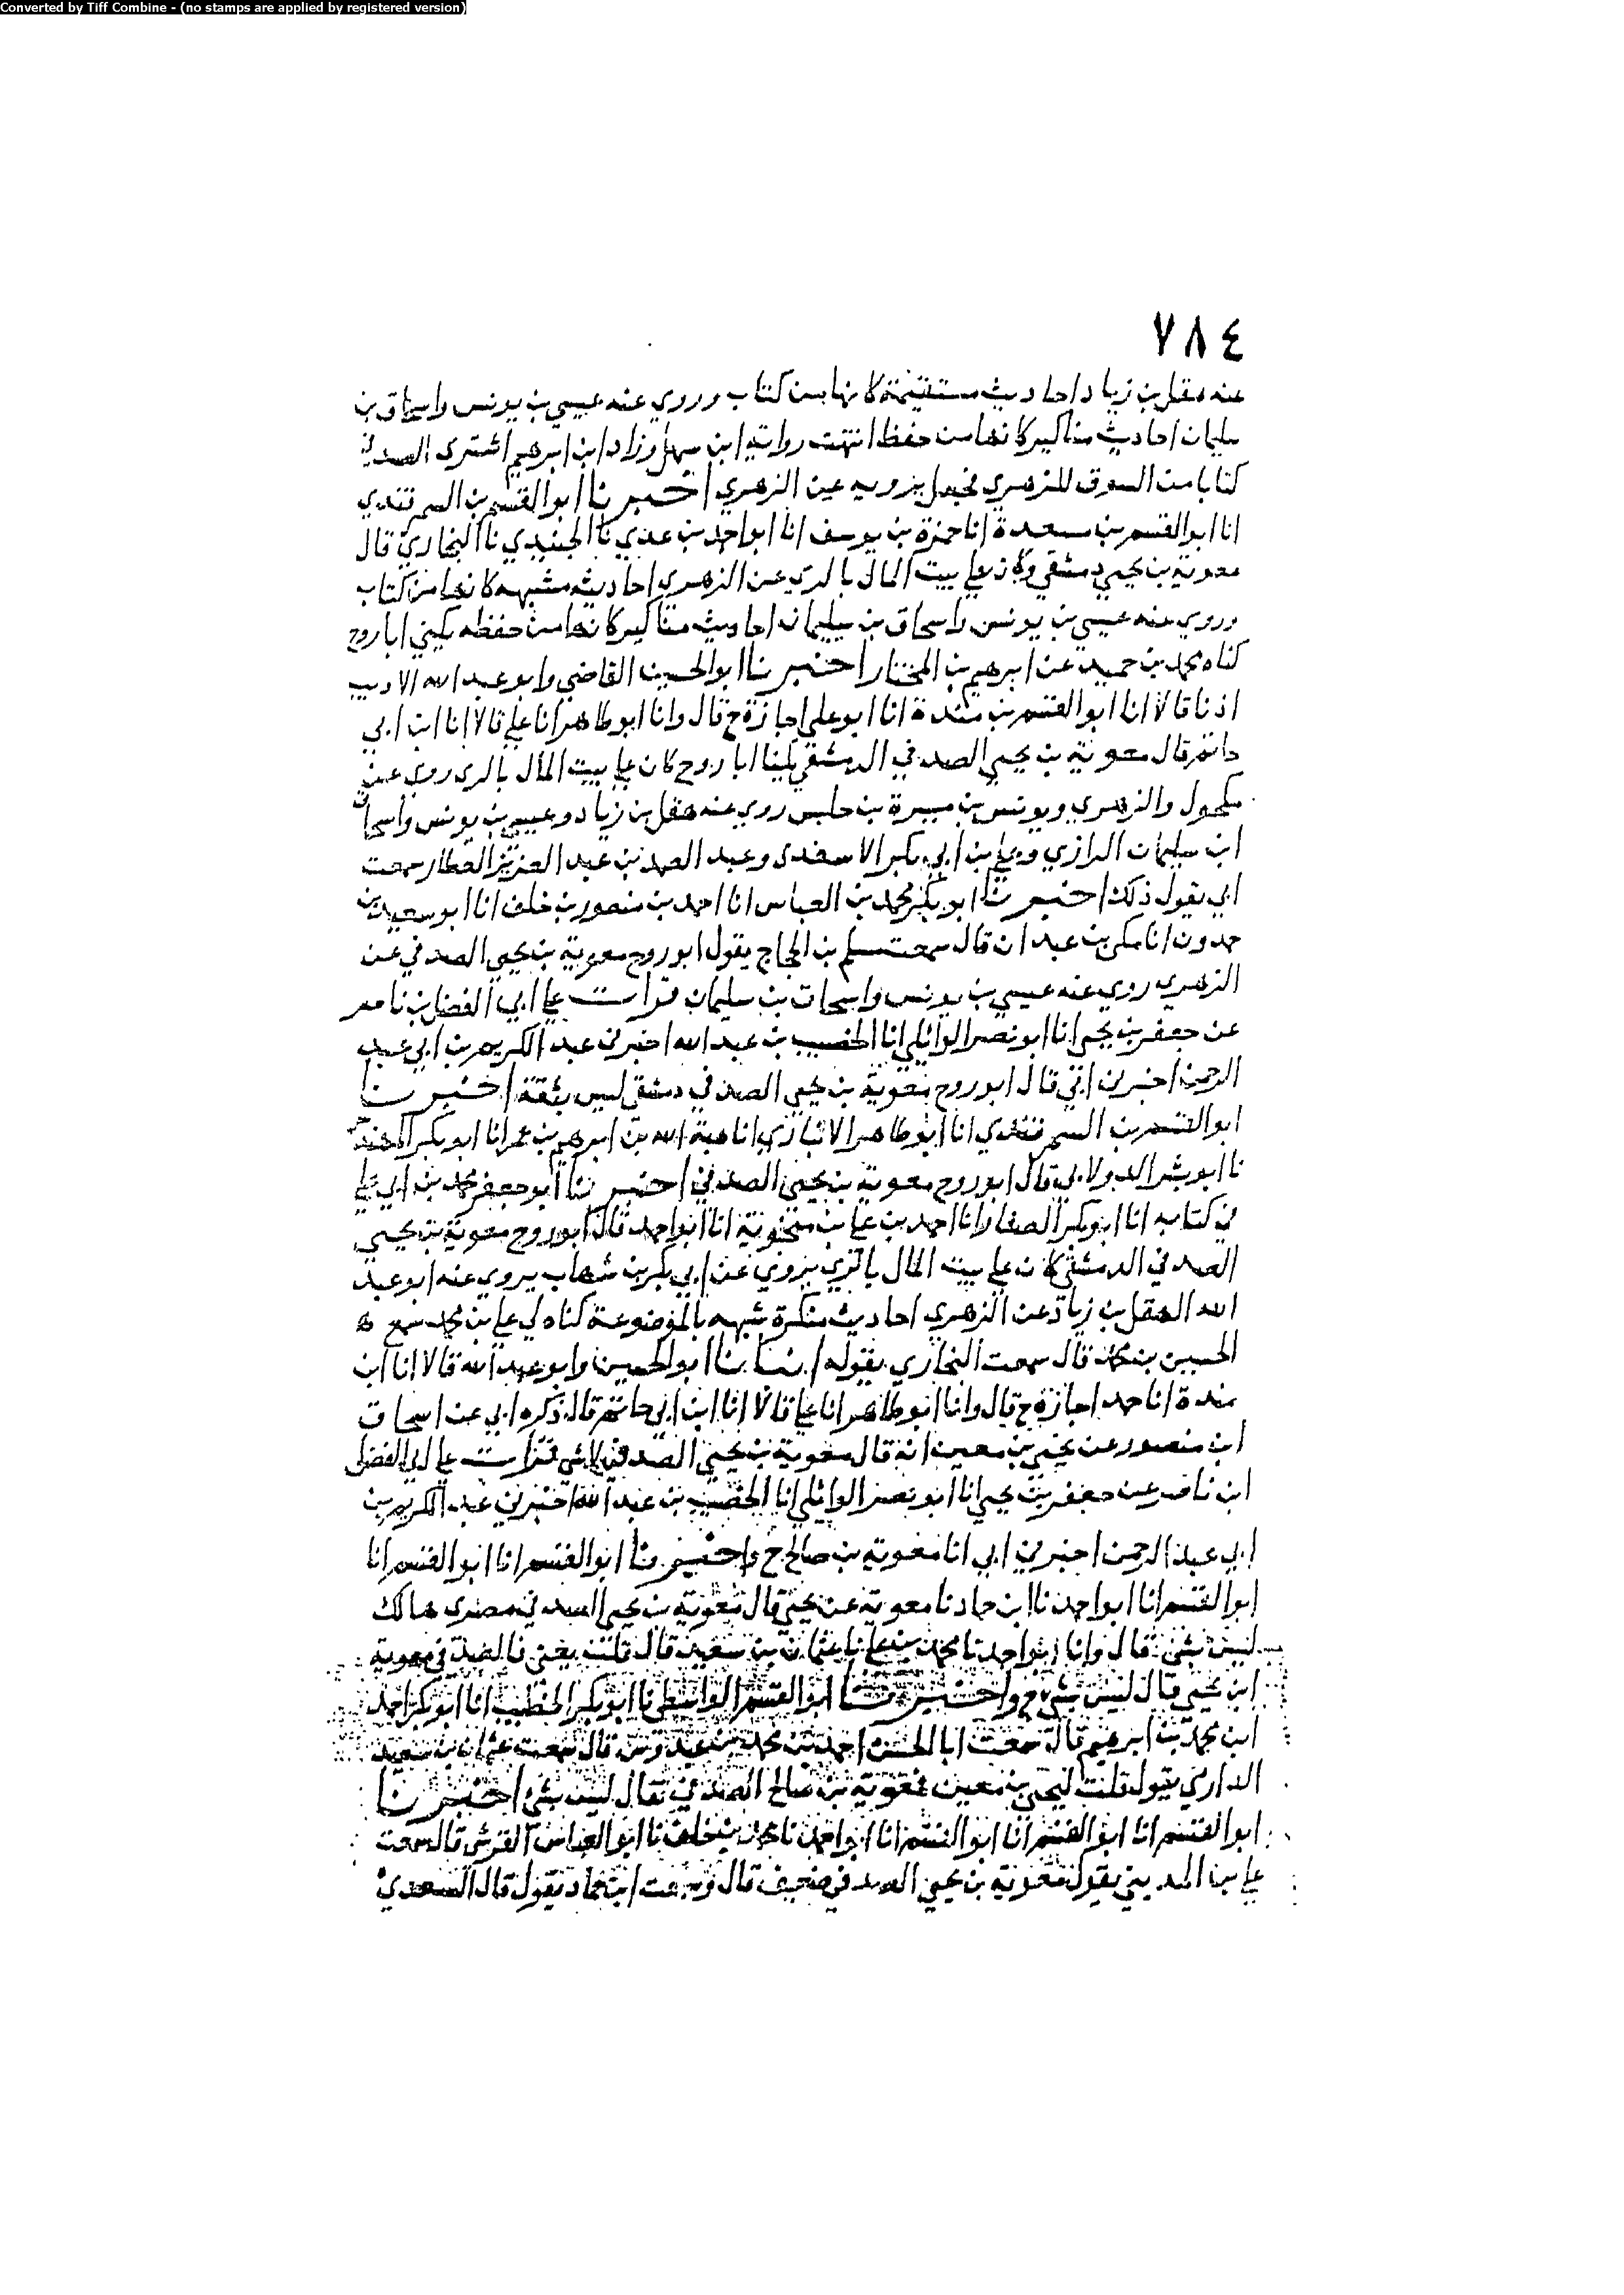 Converted by Tiff Combine - (no stamps are applied by registered version)
٧٨٤
عنه هقل بن زياد احاديث مستقيمة كانها من كتاب وروي عنه عيسي بن يونس واسحاق بن
سليمان احاديث مناكير كانها من حفظ انتهت رواية ابن سهل وزاد ابن ابرهيم اشترى الصدفي
كتابا من السوق للزهري فجعل يرويه عن الزهري اخبرنا ابو القسم بن السمرقندي
انا ابو القسم بن مسعدة انا حمزة بن يوسف انا ابو احمد بن عدي نا الجنيدي نا البخاري قال
معوية بن يحيى دمشقي وكان علي بيت المال بالري عن الزهري احاديث مشبهه كانها من كتاب
وروي عنه عيسي بن يونس واسحاق بن سليمان احاديث مناكير كانها من حفظه يكني ابا روح
كناه محمد بن حميد عن ابرهيم بن المختار اخبرنا ابو الحسين القاضي وابو عبد الله الاديب
اذنا قالا انا ابو القسم بن مندة انا ابو علي اجازة ح قال وانا ابو طاهر انا علي قالا انا ابن ابي
حاتم قال معوية بن يحيى الصدفي الدمشقي يكنا ابا روح كان علي بيت المال بالري روي عن
مكحول والزهري ويونس بن ميسرة بن حلبس روي عنه هقل بن زياد وعيسي بن يونس واسحاق
ابن سليمان الرازي وعلي بن ابي بكر الاسفدى وعبد الصمد بن عبد العزيز العطار سمعت
ابي يقول ذلك اخبرنا ابو بكر محمد بن العباس انا احمد بن منصور بن خلف انا ابو سعيد بن
حمدون انا مكي بن عبدان قال سمعت مسلم بن الحجاج يقول ابو روح معوية بن يحيى الصدفي عن
الزهري روي عنه عيسي بن يونس واسحاق بن سليمان قرات علي ابي الفضل بن ناصر
عن جعفر بن يحيى انا ابو نصر الوائلي انا الخصيب بن عبد الله اخبرني عبد الكريم بن ابي عبد
الرحمن اخبرني ابي قال ابو روح معوية بن يحيى الصدفي دمشقي ليس بثقة اخبرنا
ابو القسم بن السمرقندي انا ابو طاهر الانباري انا هبة الله بن ابرهيم بن عمر انا ابو بكر المهندس
نا ابو بشر الدولابي قال ابو روح معوية بن يحيى الصدفي اخبرنا ابو جعفر محمد بن ابي علي
في كتابه انا ابو بكر الصفار انا احمد بن علي بن منجوية انا ابو احمد قال ابو روح معوية بن يحيى
الصدفي الدمشقي كان علي بيت المال بالري يروي عن ابي بكر بن شهاب يروي عنه ابو عبد
الله الهقل بن زياد عن الزهري احاديث منكرة شبيهه بالموضوعة كناه لي علي بن محمد سمع
الحسين بن محمد قال سمعت البخاري يقوله انبانا ابو الحسين وابو عبد الله قالا انا ابن
مندة انا حمد اجازة ح قال وانا ابو طاهر انا علي قالا انا ابن ابي حاتم قال ذكره ابي عن اسحاق
ابن منصور عن يحيى بن معين انه قال معوية بن يحيى الصدفي لا شي قرات علي ابي الفضل
ابن ناصر عن جعفر بن يحيى انا ابو نصر الوائلي انا الخصيب بن عبد الله اخبرني عبد الكريم بن
ابي عبد الرحمن اخبرني ابي انا معوية بن صالح ح واخبرنا ابو القسم انا ابو القسم انا
ابو القسم انا ابو احمد نا ابن حماد نا معوية عن يحيى قال معوية بن يحيى الصدفي مصري هالك
ليس بشي قال وانا ابو احمد نا محمد بن علي نا عثمان بن سعيد قال قلت يعني فالصدفي معوية
ابن يحيى قال ليس بشي ح واخبرنا ابو القسم الواسطي نا ابو بكر الخطيب انا ابو بكر احمد
ابن محمد بن ابرهيم قال سمعت ابا الحسن احمد بن محمد بن عبدوس قال سمعت عثمان بن سعيد
الدارمي يقول قلت ليحيى بن معين فمعوية بن صالح الصدفي فقال ليس بشي اخبرنا
ابو القسم انا ابو القسم انا ابو القسم انا ابو احمد نا محمد بن خلف نا ابو العباس القرشي قال سمعت
علي بن المديني يقول معوية بن يحيى الصدفي ضعيف قال وسمعت ابن حماد يقول قال السعدي